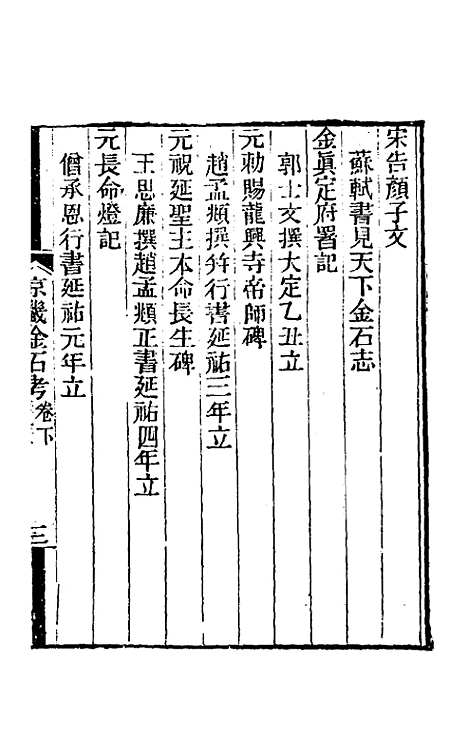 宋告顏子文
蘇軾書見天下金石志
金眞定府署記
郭士文撰大定乙丑立
元勅賜龍興寺帝師碑
趙孟頫撰幷行書延祐三年立
元祝延聖主本命長生碑
王思廉撰趙孟頫正書延祐四年立
元長命燈記
僧承恩行書延祐元年立
京畿金石考 卷下
三